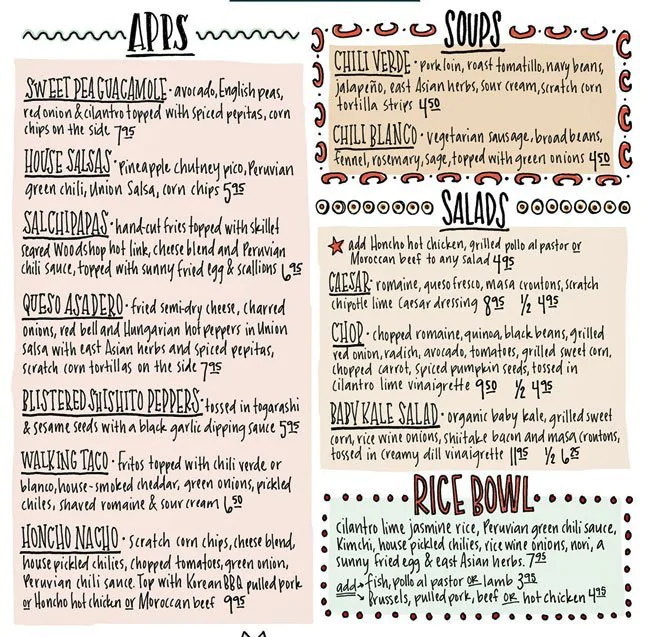 APPS
SWEET PEA GUACAMOLE · avocado, English peas,
red onion & cilantro topped with spiced pepitas, corn
chips on the side 7.95
HOUSE SALSAS · Pineapple chutney pico, Peruvian
green chili, Union Salsa, corn chips 5.95
SALCHIPAPAS · hand-cut fries topped with skillet
seared Woodshop hot link, cheese blend and Peruvian
chili sauce, topped with sunny fried egg & scallions 6.95
QUESO ASADERO · fried semi-dry cheese, charred
onions, red bell and Hungarian hot peppers in Union
salsa with east Asian herbs and spiced pepitas,
scratch corn tortillas on the side 7.95
BLISTERED SHISHITO PEPPERS · tossed in togarashi
& sesame seeds with a black garlic dipping sauce 5.95
WALKING TACO · fritos topped with chili verde or
blanco, house-smoked cheddar, green onions, pickled
chiles, shaved romaine & sour cream 6.50
HONCHO NACHO · Scratch corn chips, cheese blend,
house pickled chilies, chopped tomatoes, green onion,
Peruvian chili sauce. Top with Korean BBQ pulled pork
or Honcho hot chicken or Moroccan beef 9.95
SOUPS
CHILI VERDE · pork loin, roast tomatillo, navy beans,
jalapeño, east Asian herbs, sour cream, scratch corn
tortilla strips 4.50
CHILI BLANCO · vegetarian sausage, broad beans,
fennel, rosemary, sage, topped with green onions 4.50
SALADS
add Honcho hot chicken, grilled pollo al pastor or
Moroccan beef to any salad 4.95
CAESAR · romaine, queso fresco, masa croutons, scratch
chipotle lime Caesar dressing 8.95 1/2 4.95
CHOP · chopped romaine, quinoa, black beans, grilled
red onion, radish, avocado, tomatoes, grilled sweet corn,
chopped carrot, spiced pumpkin seeds, tossed in
cilantro lime vinaigrette 9.50 1/2 4.95
BABY KALE SALAD · organic baby kale, grilled sweet
corn, rice wine onions, shiitake bacon and masa croutons,
tossed in creamy dill vinaigrette 11.95 1/2 6.25
RICE BOWL
cilantro lime jasmine rice, Peruvian green chili sauce,
Kimchi, house pickled chilies, rice wine onions, nori, a
sunny fried egg & east Asian herbs. 7.95
add → fish, pollo al pastor or lamb 3.95
Brussels, pulled pork, beef or hot chicken 4.95